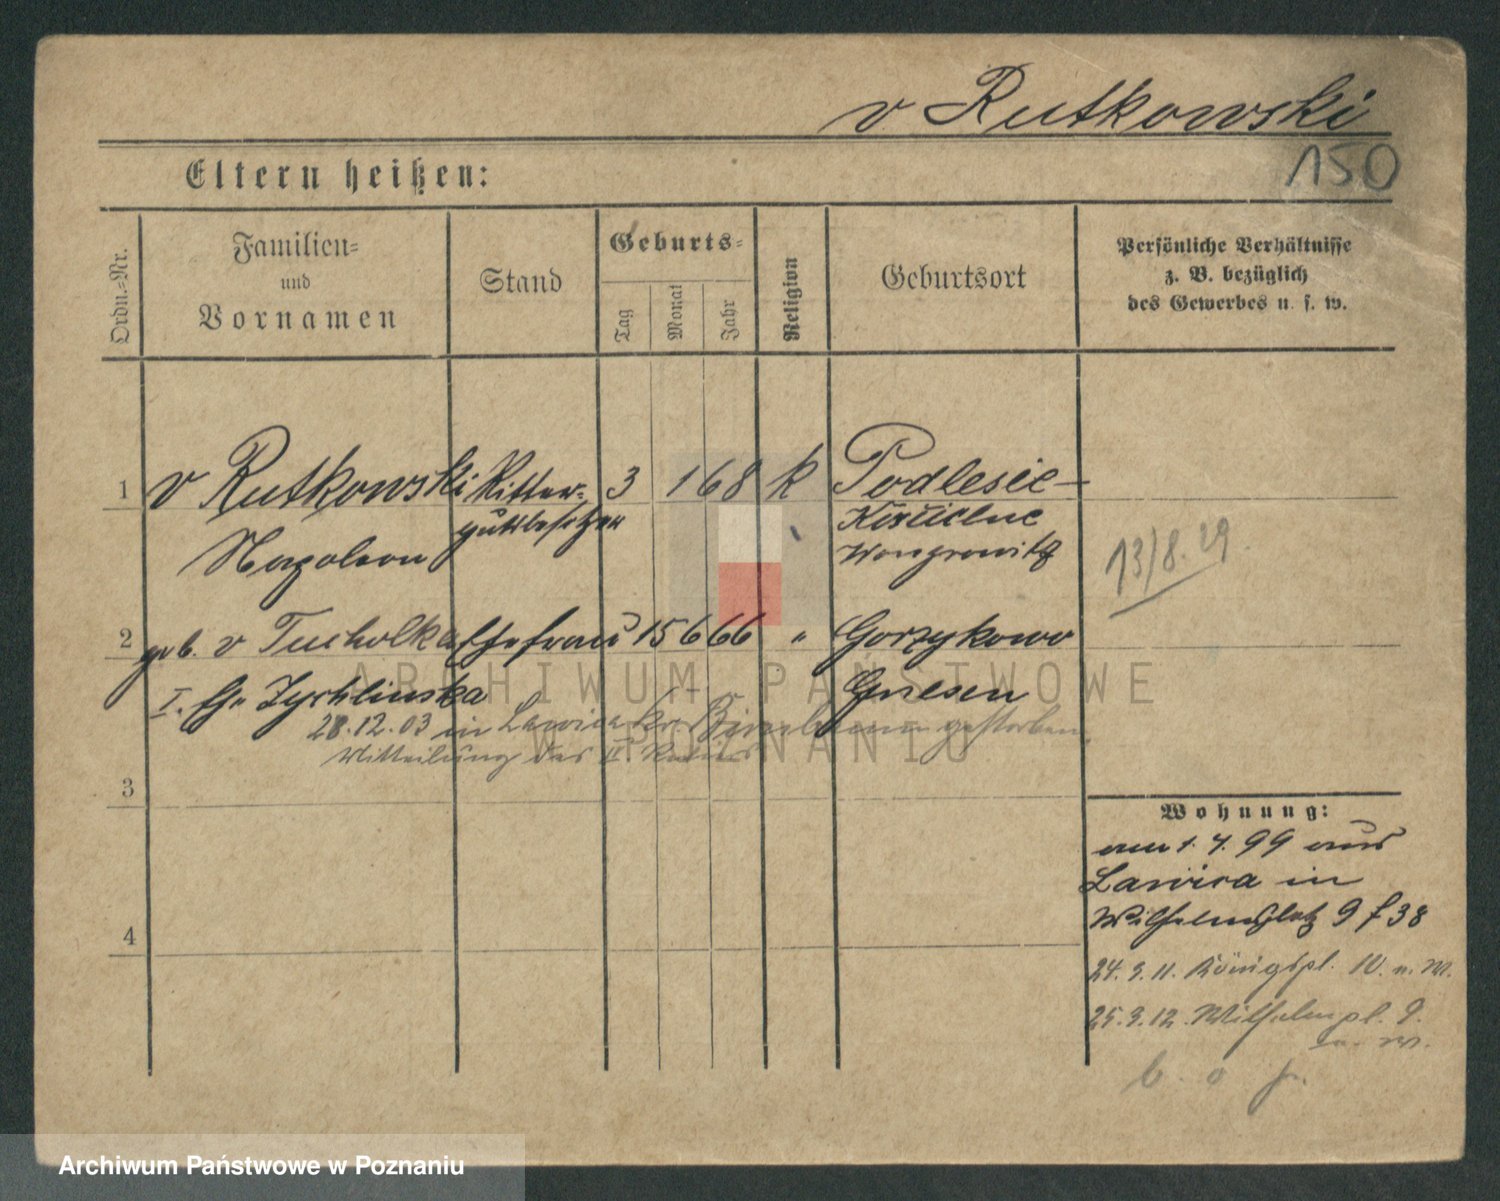 v Rutkowski
150
Eltern heißen:
Ordn.-Nr.
Familien-
und
Vornamen
Stand
Geburts-
Tag
Monat
Jahr
Religion
Geburtsort
Persönliche Verhältnisse
z. B. bezüglich
des Gewerbes u. s. w.
1 v Rutkowski Ritter- 3 1 68 k Podlesie-
gutsbesitzer Kościelne
Napoleon Wongrowitz
13/8.29.
2 geb. v Tucholka Ehefrau 15 6 66 " Gorzykowo
I. Eh Zychlinska Gnesen
28.12.03 in Lawica Kr. Birnbaum gestorben.
Mitteilung des II Reviers
3
4
Wohnung:
am 1. 4. 99 aus
Lawica in
Wilhelmsplatz 9 f 38
24.9.11. Königspl. IV. n. M.
25.9.12. Wilhelmspl. 9.
n. M.
ARCHIWUM PAŃSTWOWE
W POZNANIU
Archiwum Państwowe w Poznaniu